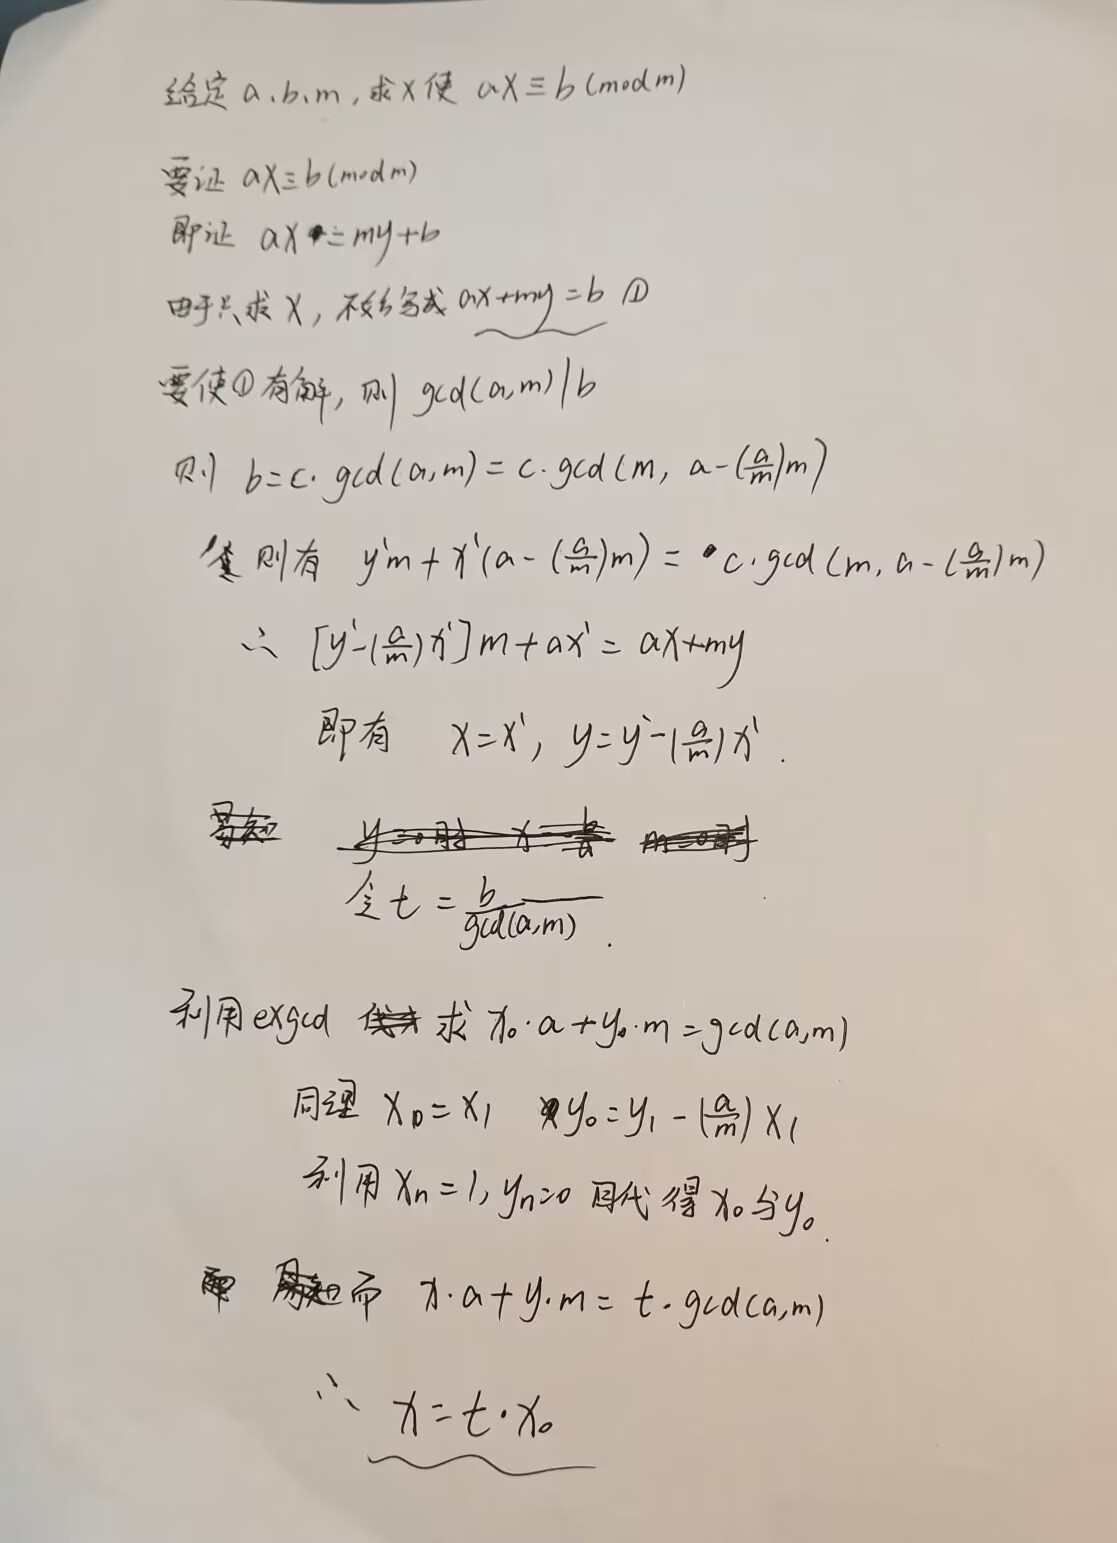 给定 a、b、m，求 x 使 ax≡b(mod m)
要证 ax≡b(mod m)
即证 ax=my+b
由于只求 x，不妨写成 ax+my=b ①
要使①有解，则 gcd(a,m)|b
则 b=c·gcd(a,m)=c·gcd(m, a-(a/m)m)
则有 y'm+x'(a-(a/m)m)=c·gcd(m, a-(a/m)m)
∴ [y'-(a/m)x']m+ax'=ax+my
即有 x=x', y=y'-(a/m)x'.
令 t=b/gcd(a,m).
利用exgcd 求 x₀·a+y₀·m=gcd(a,m)
同理 x₀=x₁ y₀=y₁-(a/m)x₁
利用 xn=1, yn=0 回代得 x₀与y₀.
而 x·a+y·m=t·gcd(a,m)
∴ x=t·x₀